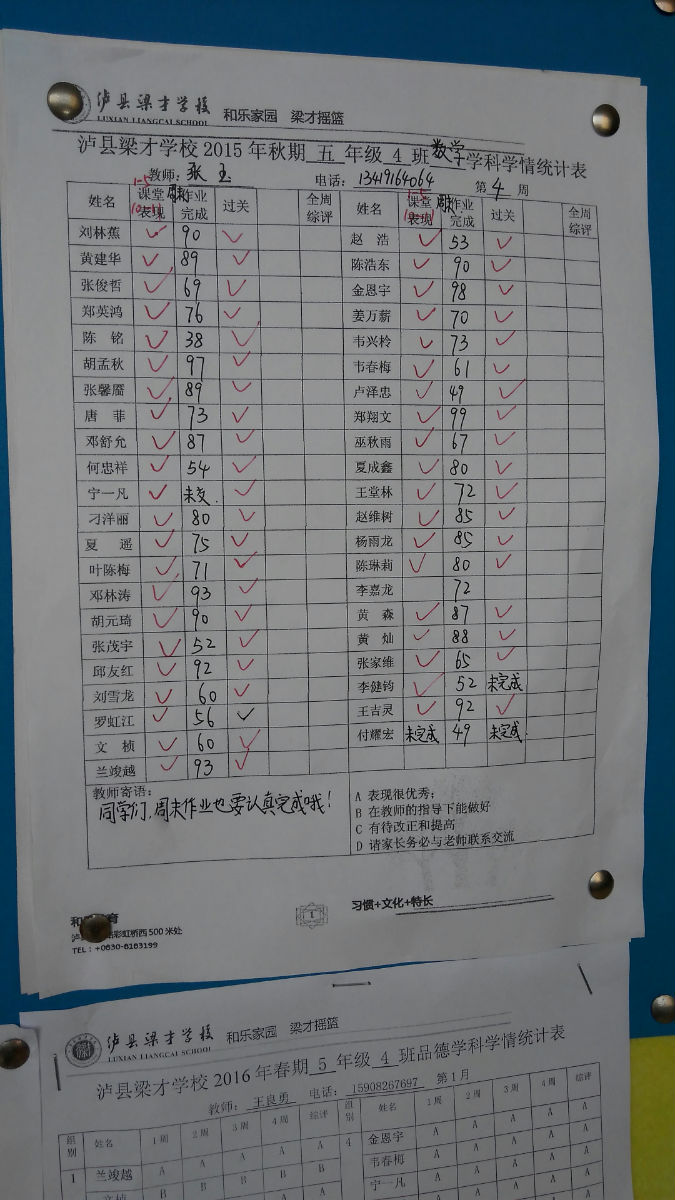 泸县梁才学校 和乐家园 梁才摇篮
LUXIAN LIANGCAI SCHOOL
泸县梁才学校 2015 年秋期 五 年级 4 班 数学 学科学情统计表
教师: 张玉 电话: 13419164064 第 4 周
姓名 课堂表现 周末作业完成 过关 全周综评 姓名 课堂表现 周末作业完成 过关 全周综评
刘林蕉 ✓ 90 ✓ 赵浩 ✓ 53 ✓
黄建华 ✓ 89 ✓ 陈浩东 ✓ 90 ✓
张俊哲 ✓ 69 ✓ 金恩宇 ✓ 98 ✓
郑英鸿 ✓ 76 ✓ 姜万薪 ✓ 70 ✓
陈铭 ✓ 38 ✓ 韦兴柃 ✓ 73 ✓
胡孟秋 ✓ 97 ✓ 韦春梅 ✓ 61 ✓
张馨 ✓ 89 ✓ 卢泽忠 ✓ 49 ✓
唐菲 ✓ 73 ✓ 郑翔文 ✓ 99 ✓
邓舒允 ✓ 87 ✓ 巫秋雨 ✓ 67 ✓
何忠祥 ✓ 54 ✓ 夏成鑫 ✓ 80 ✓
宁一凡 ✓ 未交. ✓ 王堂林 ✓ 72 ✓
刁洋丽 ✓ 80 ✓ 赵维树 ✓ 85 ✓
夏遥 ✓ 75 ✓ 杨雨龙 ✓ 85 ✓
叶陈梅 ✓ 71 ✓ 陈琳莉 ✓ 80 ✓
邓林涛 ✓ 93 ✓ 李嘉龙 72
胡元琦 ✓ 90 ✓ 黄森 ✓ 87 ✓
张茂宇 ✓ 52 ✓ 黄灿 ✓ 88 ✓
邱友红 ✓ 92 ✓ 张家维 ✓ 65 ✓
刘雪龙 ✓ 60 ✓ 李健钧 ✓ 52 未完成
罗虹江 ✓ 56 ✓ 王吉灵 ✓ 92 ✓
文桢 ✓ 60 ✓ 付耀宏 未完成 49 未完成
兰竣越 ✓ 93 ✓
教师寄语:
同学们,周末作业也要认真完成哦!
A 表现很优秀;
B 在教师的指导下能做好
C 有待改正和提高
D 请家长务必与老师联系交流
习惯+文化+特长
和 育
泸 彩虹桥西 500 米处
TEL:+0830-8183199
泸县梁才学校 和乐家园 梁才摇篮
LUXIAN LIANGCAI SCHOOL
泸县梁才学校 2016 年春期 5 年级 4 班品德学科学情统计表
教师: 王良勇 电话: 15908267697 第 1 月
组别 姓名 1 周 2 周 3 周 4 周 综评 组别 姓名 1 周 2 周 3 周 4 周 综评
1 兰竣越 A A A A A 4 金恩宇 A A A A A
文桢 B B B B B 韦春梅 A A A A A
宁一凡 A A A A A